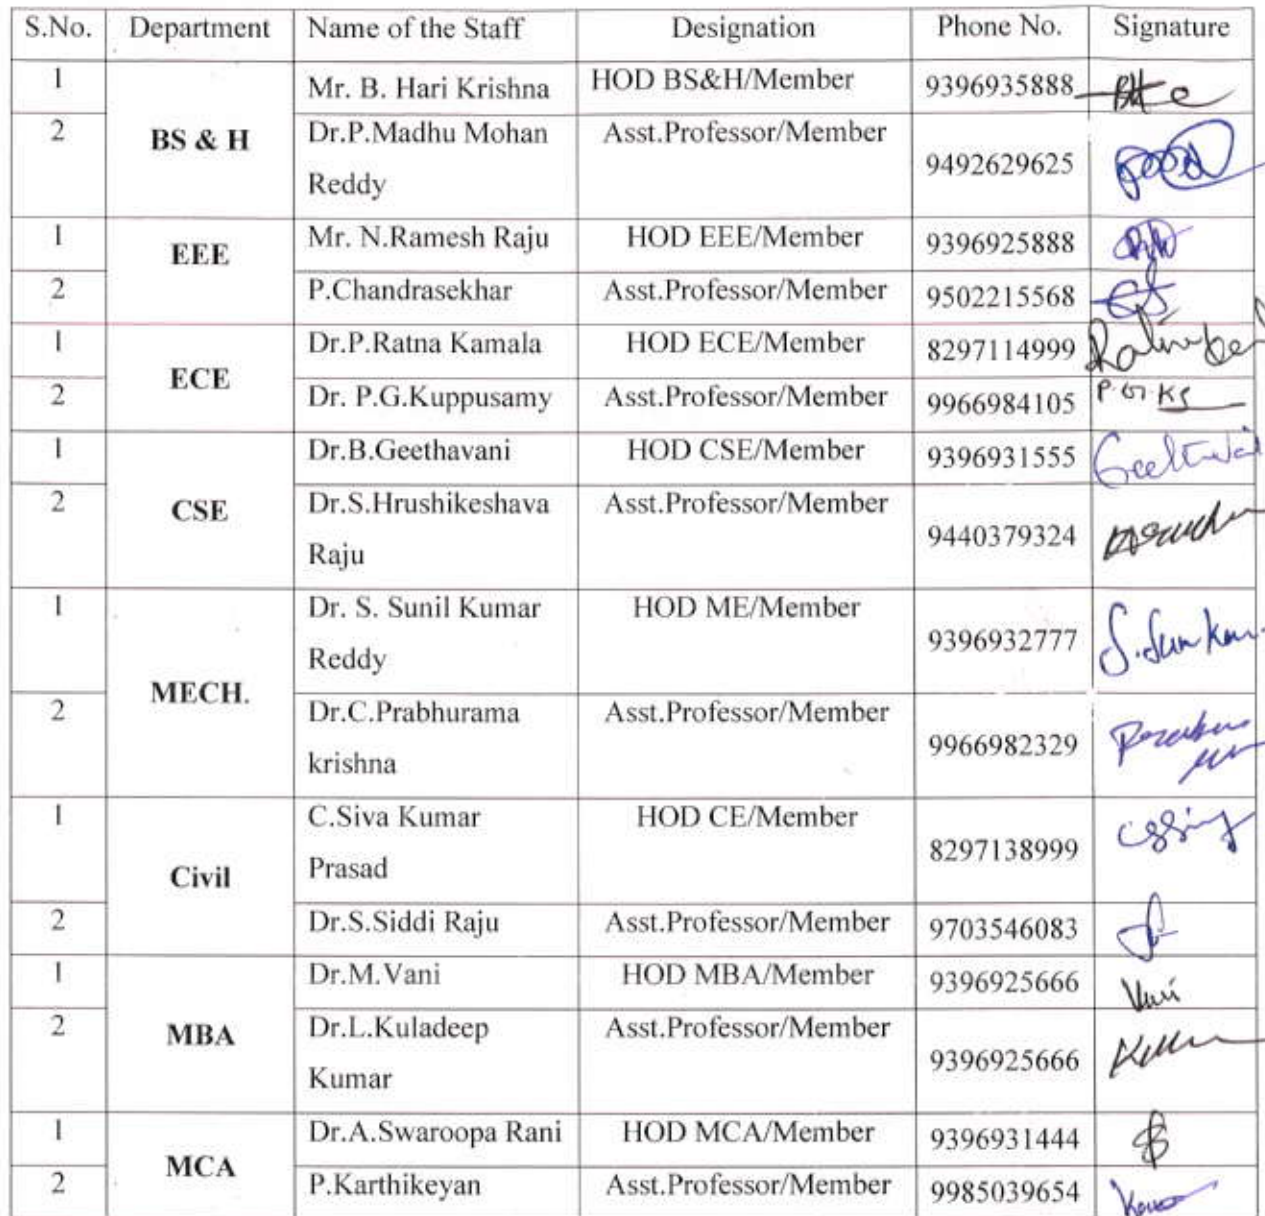 S.No. Department Name of the Staff Designation Phone No. Signature
1 Mr. B. Hari Krishna HOD BS&H/Member 9396935888
BS & H
2 Dr.P.Madhu Mohan Asst.Professor/Member 9492629625
Reddy
1 Mr. N.Ramesh Raju HOD EEE/Member 9396925888
EEE
2 P.Chandrasekhar Asst.Professor/Member 9502215568
1 Dr.P.Ratna Kamala HOD ECE/Member 8297114999
ECE
2 Dr. P.G.Kuppusamy Asst.Professor/Member 9966984105
1 Dr.B.Geethavani HOD CSE/Member 9396931555
CSE
2 Dr.S.Hrushikeshava Asst.Professor/Member 9440379324
Raju
1 Dr. S. Sunil Kumar HOD ME/Member 9396932777
Reddy
MECH.
2 Dr.C.Prabhurama Asst.Professor/Member 9966982329
krishna
1 C.Siva Kumar HOD CE/Member 8297138999
Prasad
Civil
2 Dr.S.Siddi Raju Asst.Professor/Member 9703546083
1 Dr.M.Vani HOD MBA/Member 9396925666
MBA
2 Dr.L.Kuladeep Asst.Professor/Member 9396925666
Kumar
1 Dr.A.Swaroopa Rani HOD MCA/Member 9396931444
MCA
2 P.Karthikeyan Asst.Professor/Member 9985039654